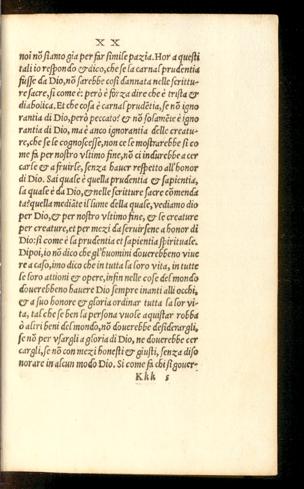 X X
noi nō siamo gia per far simile pazia. Hor a questi
tali io respondo & dico, che se la carnal prudentia
fusse da Dio, nō sarebbe cosi dannata nelle scrittu-
re sacre, si come è: però è forza dire che è trista &
diabolica. Et che cosa è carnal prudētia, se nō igno
rantia di Dio, però peccato? & nō solamēte è igno
rantia di Dio, ma è anco ignorantia delle creatu-
re, che se le cognoscesse, non ce le mostrarebbe si co
me fa per nostro vltimo fine, nō ci indurebbe a cer
carle & a fruirle, senza hauer respetto all'honor
di Dio. Sai quale è quella prudentia & sapientia,
la quale è da Dio, & nelle scritture sacre cōmenda
ta? quella mediāte il lume della quale, vediamo dio
per Dio, & per nostro vltimo fine, & le creature
per creature, et per mezi da seruirsene a honor di
Dio: si come è la prudentia et sapientia spirituale.
Dipoi, io nō dico che gl'huomini douerebbeno viue
re a caso, imo dico che in tutta la loro vita, in tutte
le loro attioni & opere, infin nelle cose del mondo
douerebbeno hauere Dio sempre inanti alli occhi,
& a suo honore & gloria ordinar tutta la lor vi-
ta, tal che se ben la persona vuole aquistar robba
ò altri beni del mondo, nō douerebbe desiderargli,
se nō per vsargli a gloria di Dio, ne douerebbe cer
cargli, se nō con mezi honesti & giusti, senza diso
norare in alcun modo Dio. Si come fa chi si gouer-
Kkk 5